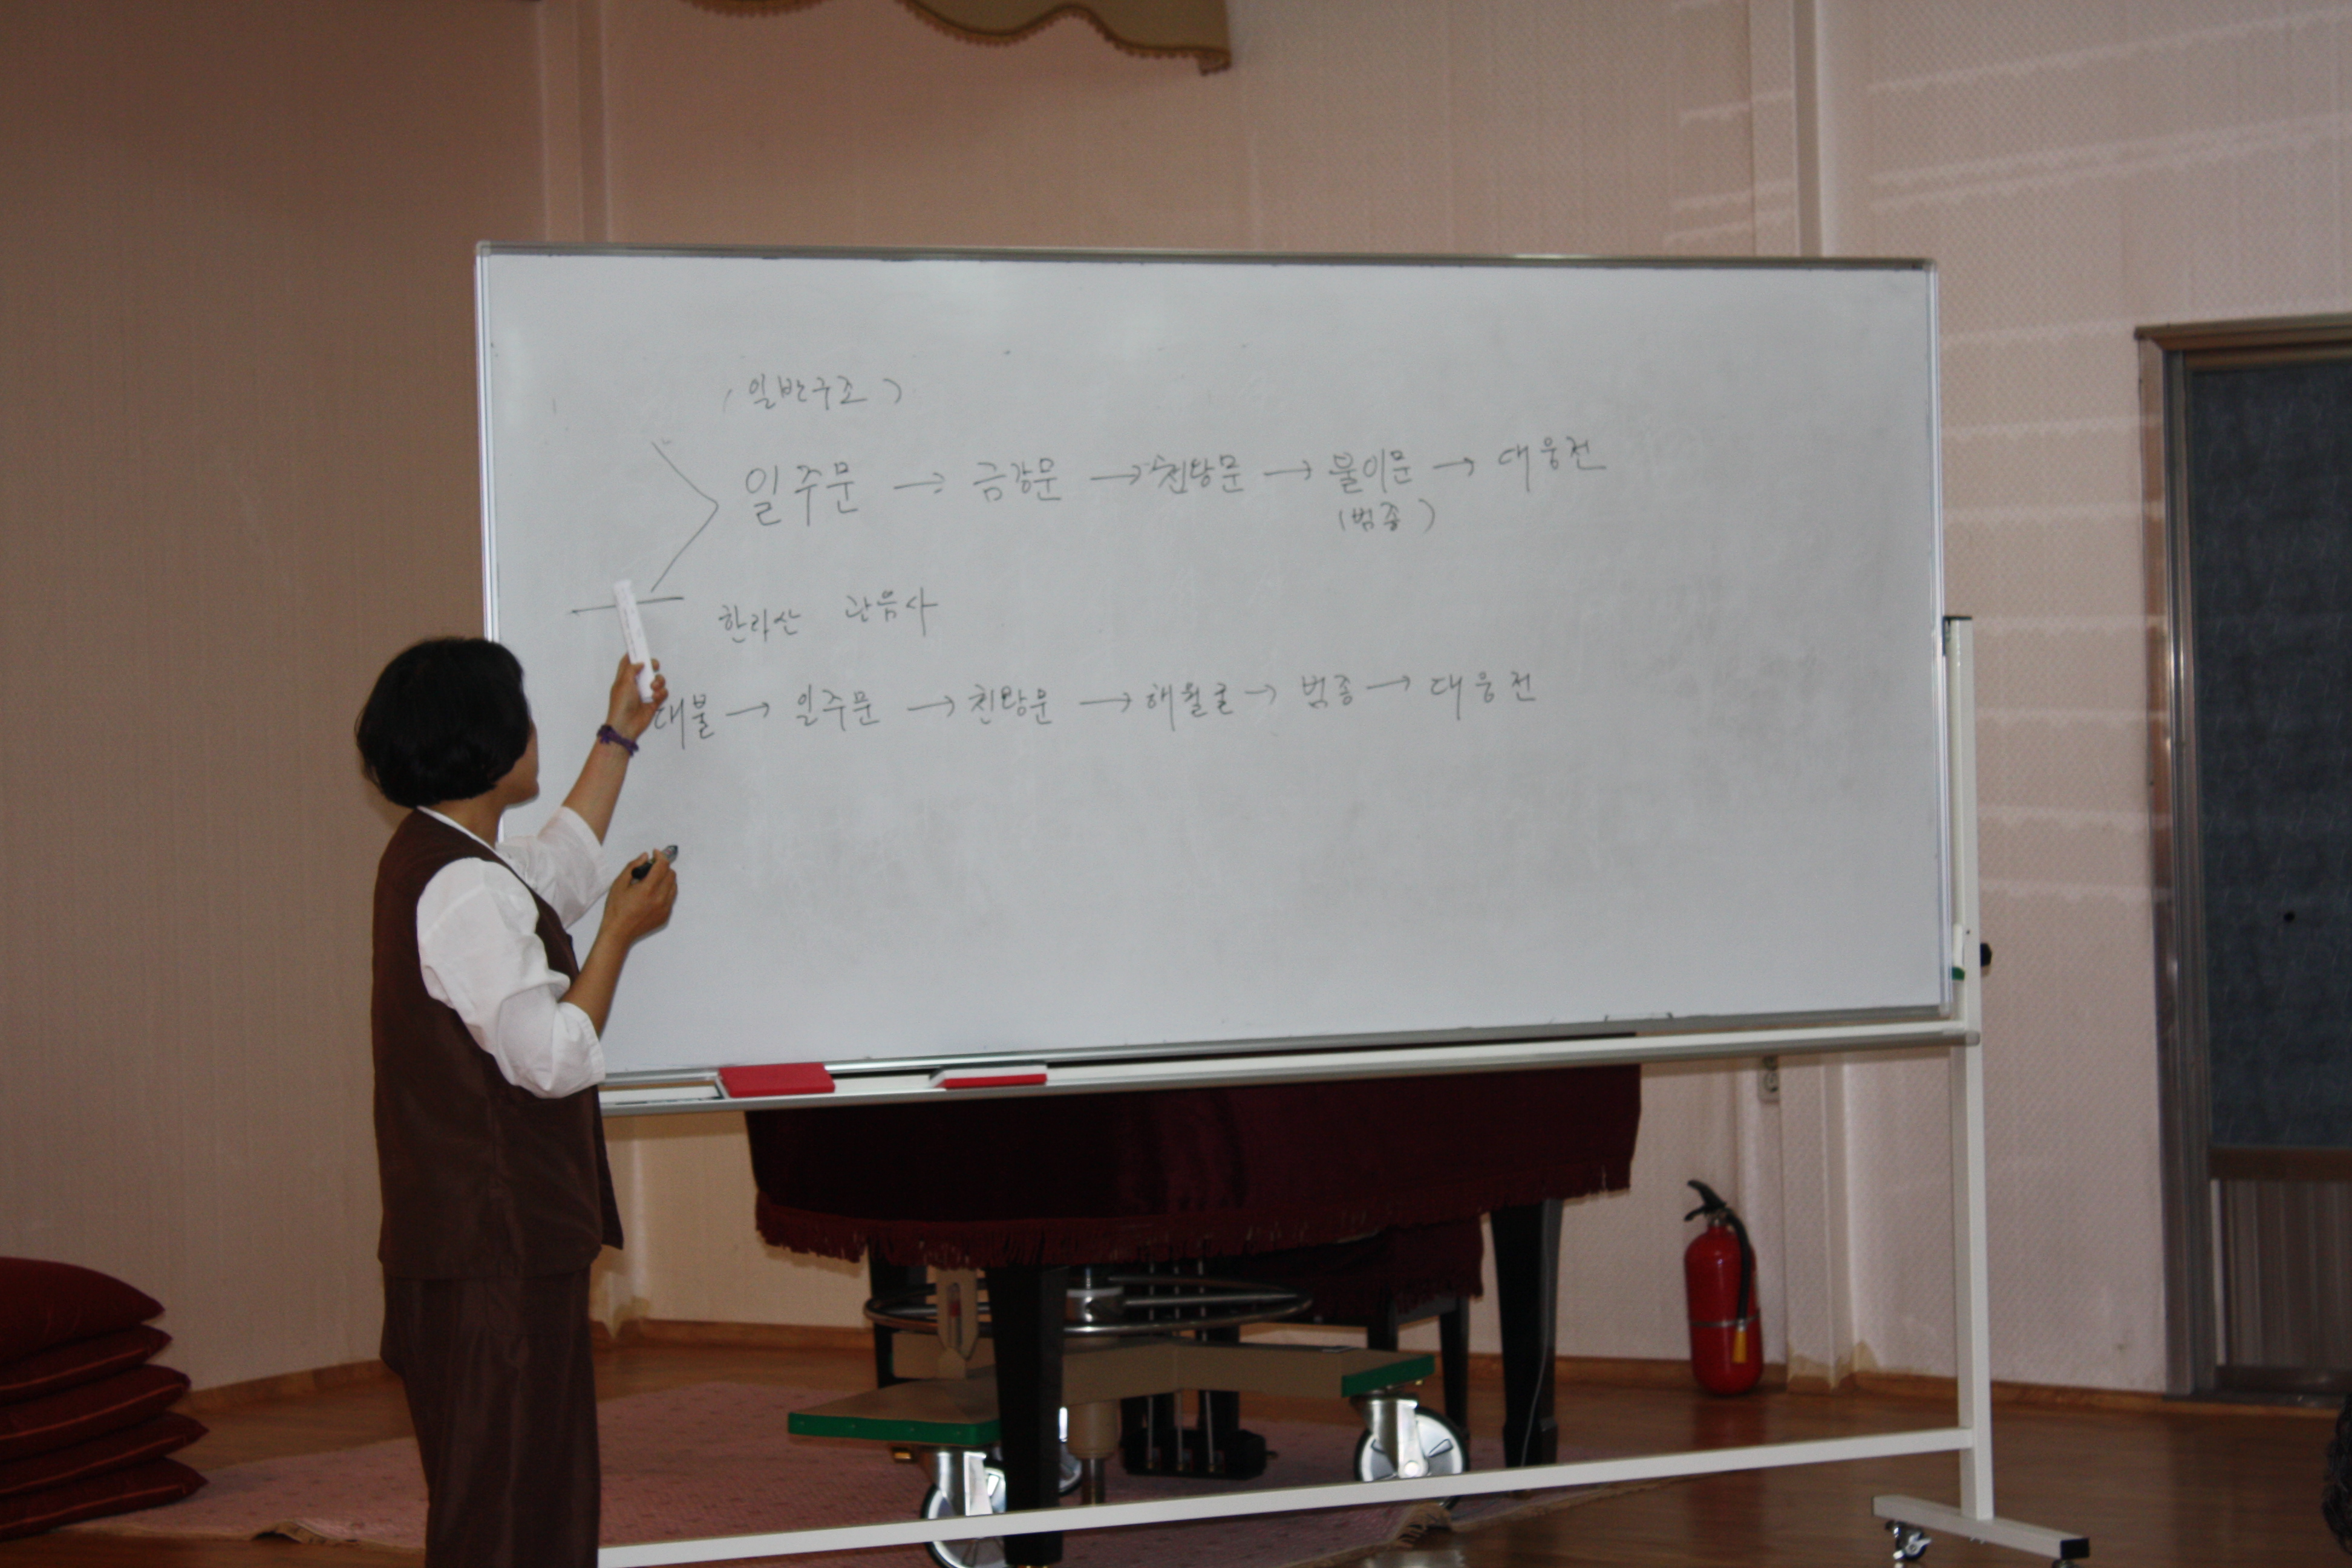 (일반구조)
일주문 → 금강문 → 천왕문 → 불이문 → 대웅전
(범종)
한라산 관음사
대불 → 일주문 → 천왕문 → 해월굴 → 범종 → 대웅전